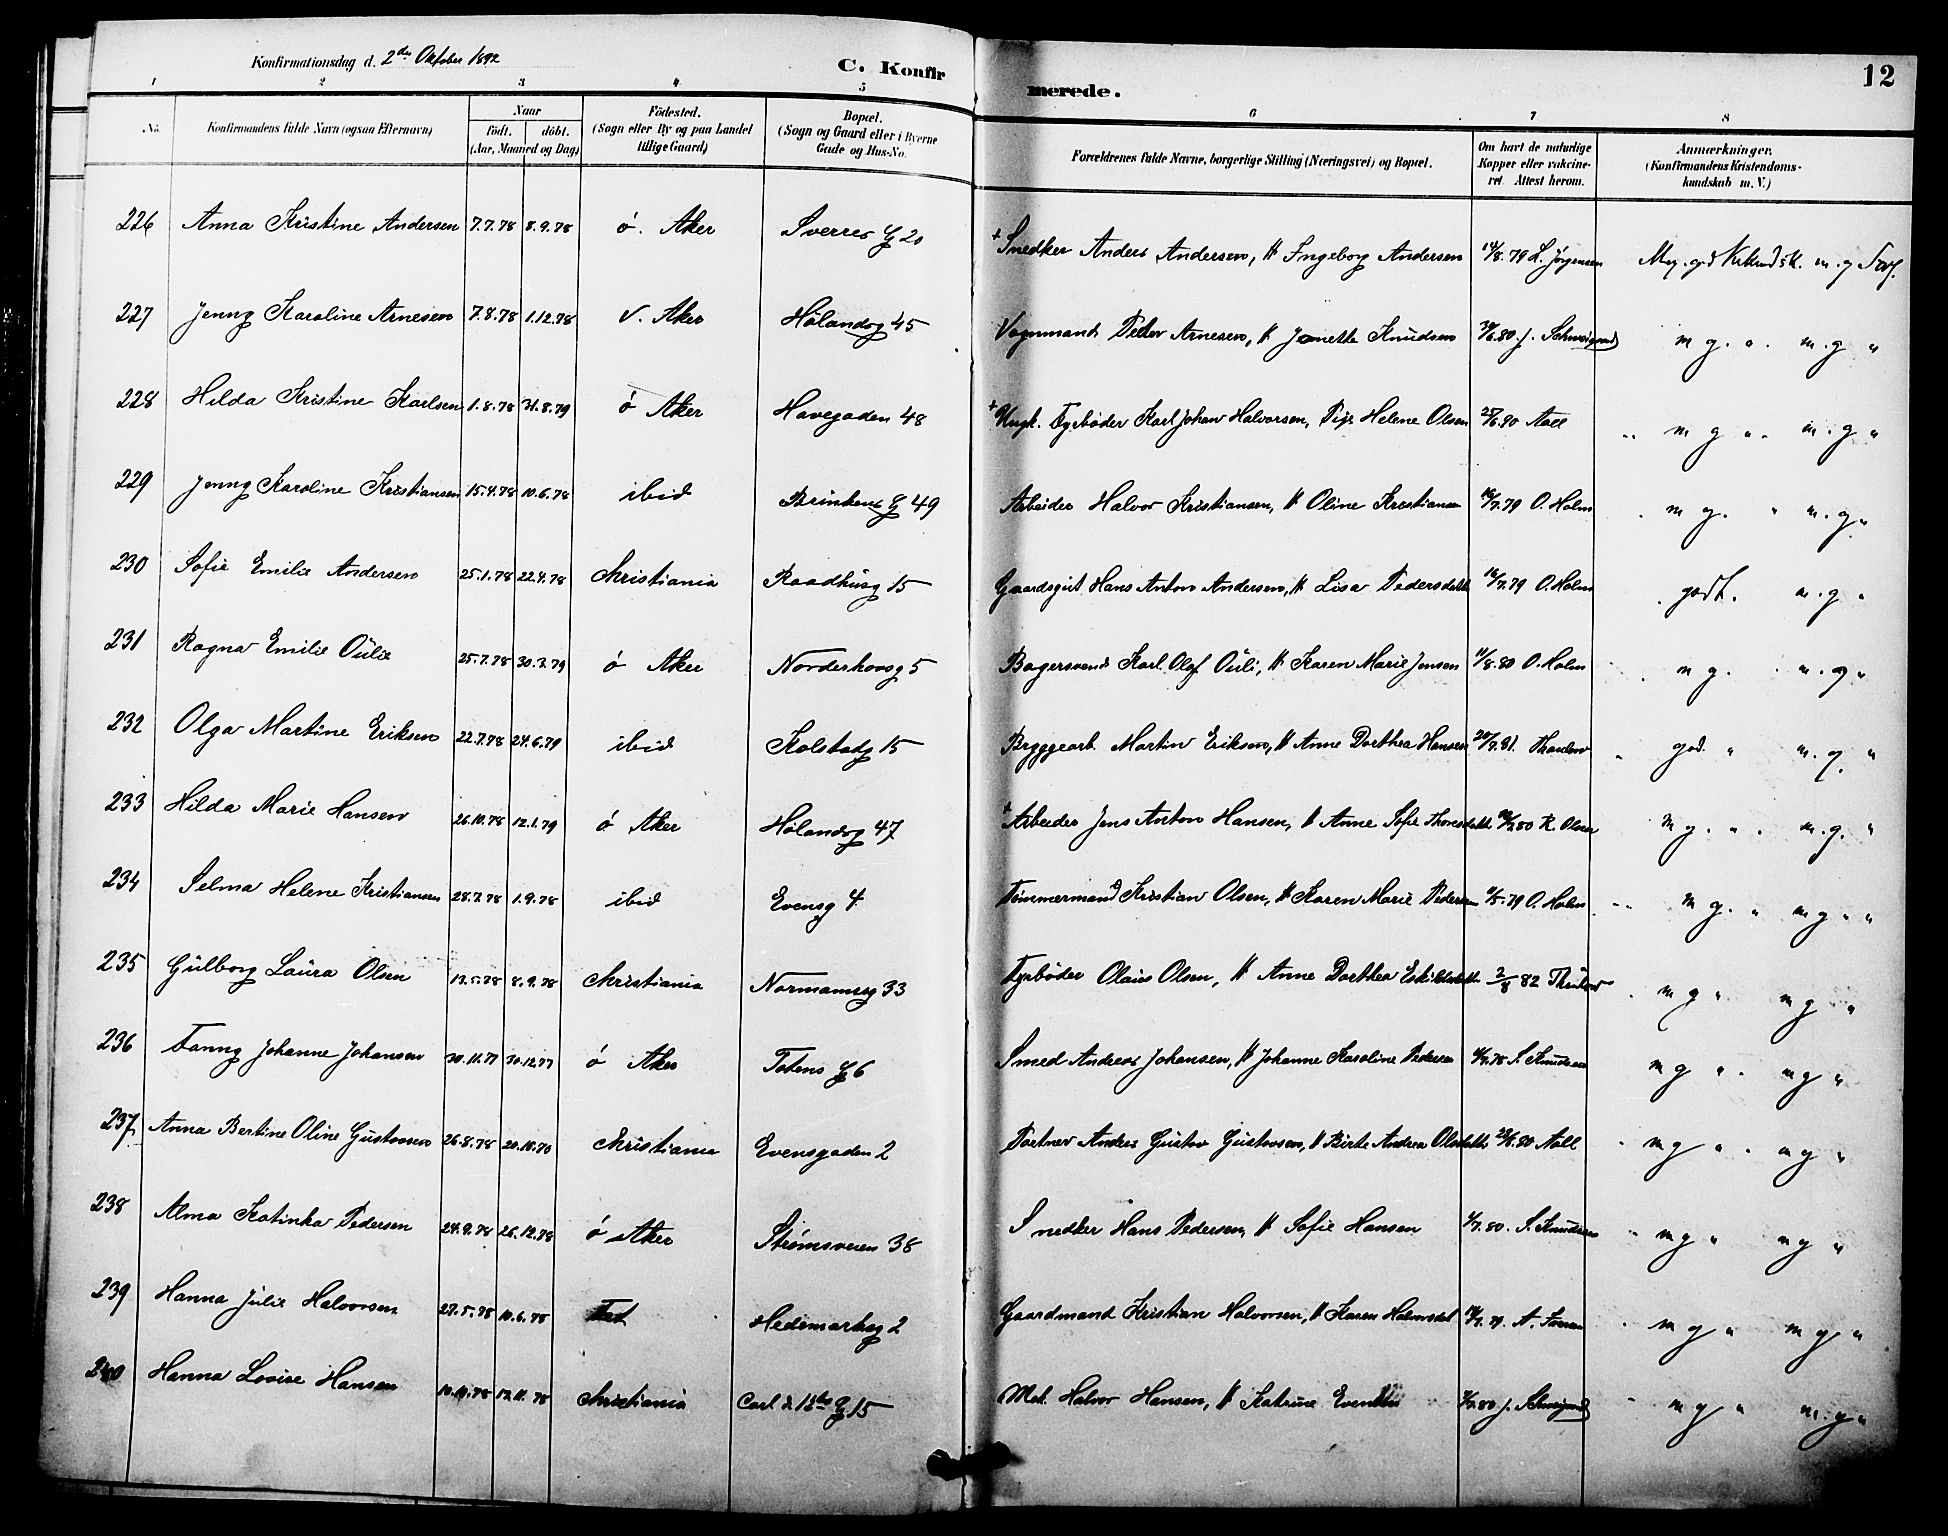 Konfirmationsdag d. 2den Oktober 1892
C. Konfir
merede.
12
1 2 3 4 5 6 7 8
No. Konfirmandens fulde Navn (ogsaa Efternavn) Naar födt. döbt. (Aar, Maaned og Dag) Födested. (Sogn eller By og paa Landet tillige Gaard) Bopæl. (Sogn og Gaard eller i Byerne Gade og Hus-No. Forældrenes fulde Navne, borgerlige Stilling (Næringsvei) og Bopæl. Om havt de naturlige Kopper eller vakcineret. Attest herom. Anmærkninger. (Konfirmandens Kristendomskundskab m. V.)
226 Anna Kristine Andersen 7.7.78 8.9.78 ö. Aker Sverres G 20 + Snedker Anders Andersen, H Ingeborg Andersen 14/8.79 L. Jørgensen Meg. god m. g
227 Jenny Karoline Arnesen 7.8.78 1.12.78 v. Aker Hølandsg 45 Vognmand Petter Arnesen, H Jonette Knudsen m g. " m. g "
228 Hilda Kristine Karlsen 1.8.78 31.8.79 ö Aker Havegaden 48 + Ungk. Fyrbøder Karl Johan Halvorsen, Pige Helene Olsen Aall m g " m. g "
229 Jenny Karoline Kristiansen 15.4.78 10.6.78 ibid Brinkens G 49 Arbeider Halvor Kristiansen, H Oline Kristiansen 16/7.79 O. Holm m g. " m. g "
230 Sofie Emilie Andersen 25.1.78 22.4.78 Christiania Raadhusg 15 Gaardsgut Hans Anton Andersen, H Lisa Pedersdatter 16/7.79 O. Holm godt. m. g "
231 Ragna Emilie Öulie 25.7.78 30.3.79 ö Aker Norderhovsg 5 Bagersvend Karl Olof Öuli, H Karen Marie Jensen 11/8.80 O. Holm m g. m. g "
232 Olga Martine Eriksen 22.7.78 24.6.79 ibid Kolstadg 15 Bryggearb. Martin Eriksen, H Anne Dorthea Hansen god. " m. g. "
233 Hilda Marie Hansen 26.10.78 12.1.79 ö Aker Hølandsg 47 + Arbeider Jens Anton Hansen, H Anne Sofie Thoresdatter K. Olsen m g. " m. g. "
234 Selma Helene Kristiansen 28.7.78 1.9.78 ibid Evensg 4 Tømmermand Kristian Olsen, H Karen Marie Pedersen O. Holm m g. " m g "
235 Gulborg Laura Olsen 13.5.78 8.9.78 Christiania Normannsg 33 Fyrbøder Olaus Olsen, H Anne Dorthea Eskildsdatter 2/8 82 m g " m g "
236 Fanny Johanne Johansen 30.11.77 30.12.77 ö Aker Totens G 6 Smed Andreas Johansen, H Johanne Karoline Pedersen S. Knudsen m g " m g "
237 Anna Bertine Oline Gustavsen 26.8.78 20.10.70 Christiania Evensgaden 2 Portner Anders Gustav Gustavsen, H Birte Andrea Olsdatter Aall m g " m g "
238 Alma Katinka Pedersen 24.9.78 26.12.78 ö Aker Strømsveien 38 Snedker Hans Pedersen, H Sofie Hansen S. Knudsen m g " m g "
239 Hanna Julie Halvorsen 27.5.78 10.6.78 Fet Hedemarksg 2 Gaardmand Kristian Halvorsen, H Karen m g " m g "
240 Hanna Lovise Hansen 10.10.78 17.11.78 Christiania Carl d. 12tes G 15 Mat. Halvor Hansen, H Katrine m g " m. g "